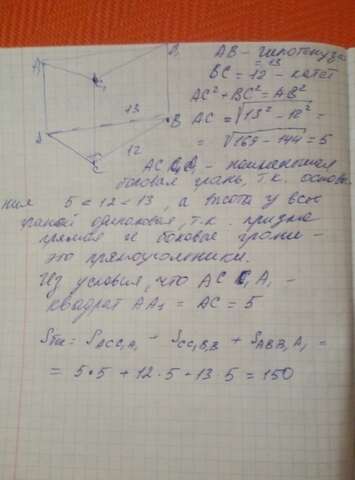 A₁
B₁
C₁
13
A
B
12
C
AB - гипотенуза
= 13
BC = 12 - катет
AC² + BC² = AB²
AC = √13² - 12² =
= √169 - 144 = 5
ACC₁A₁ - наименьшая
боковая грань, т.к. основа-
ния 5 < 12 < 13, а высота у всех
граней одинаковая, т.к. призма
прямая и боковые грани -
это прямоугольники.
Из условия, что ACC₁A₁ -
квадрат AA₁ = AC = 5
Sбок = SACC₁A₁ + SCC₁B₁B + SABB₁A₁ =
= 5·5 + 12·5 + 13·5 = 150